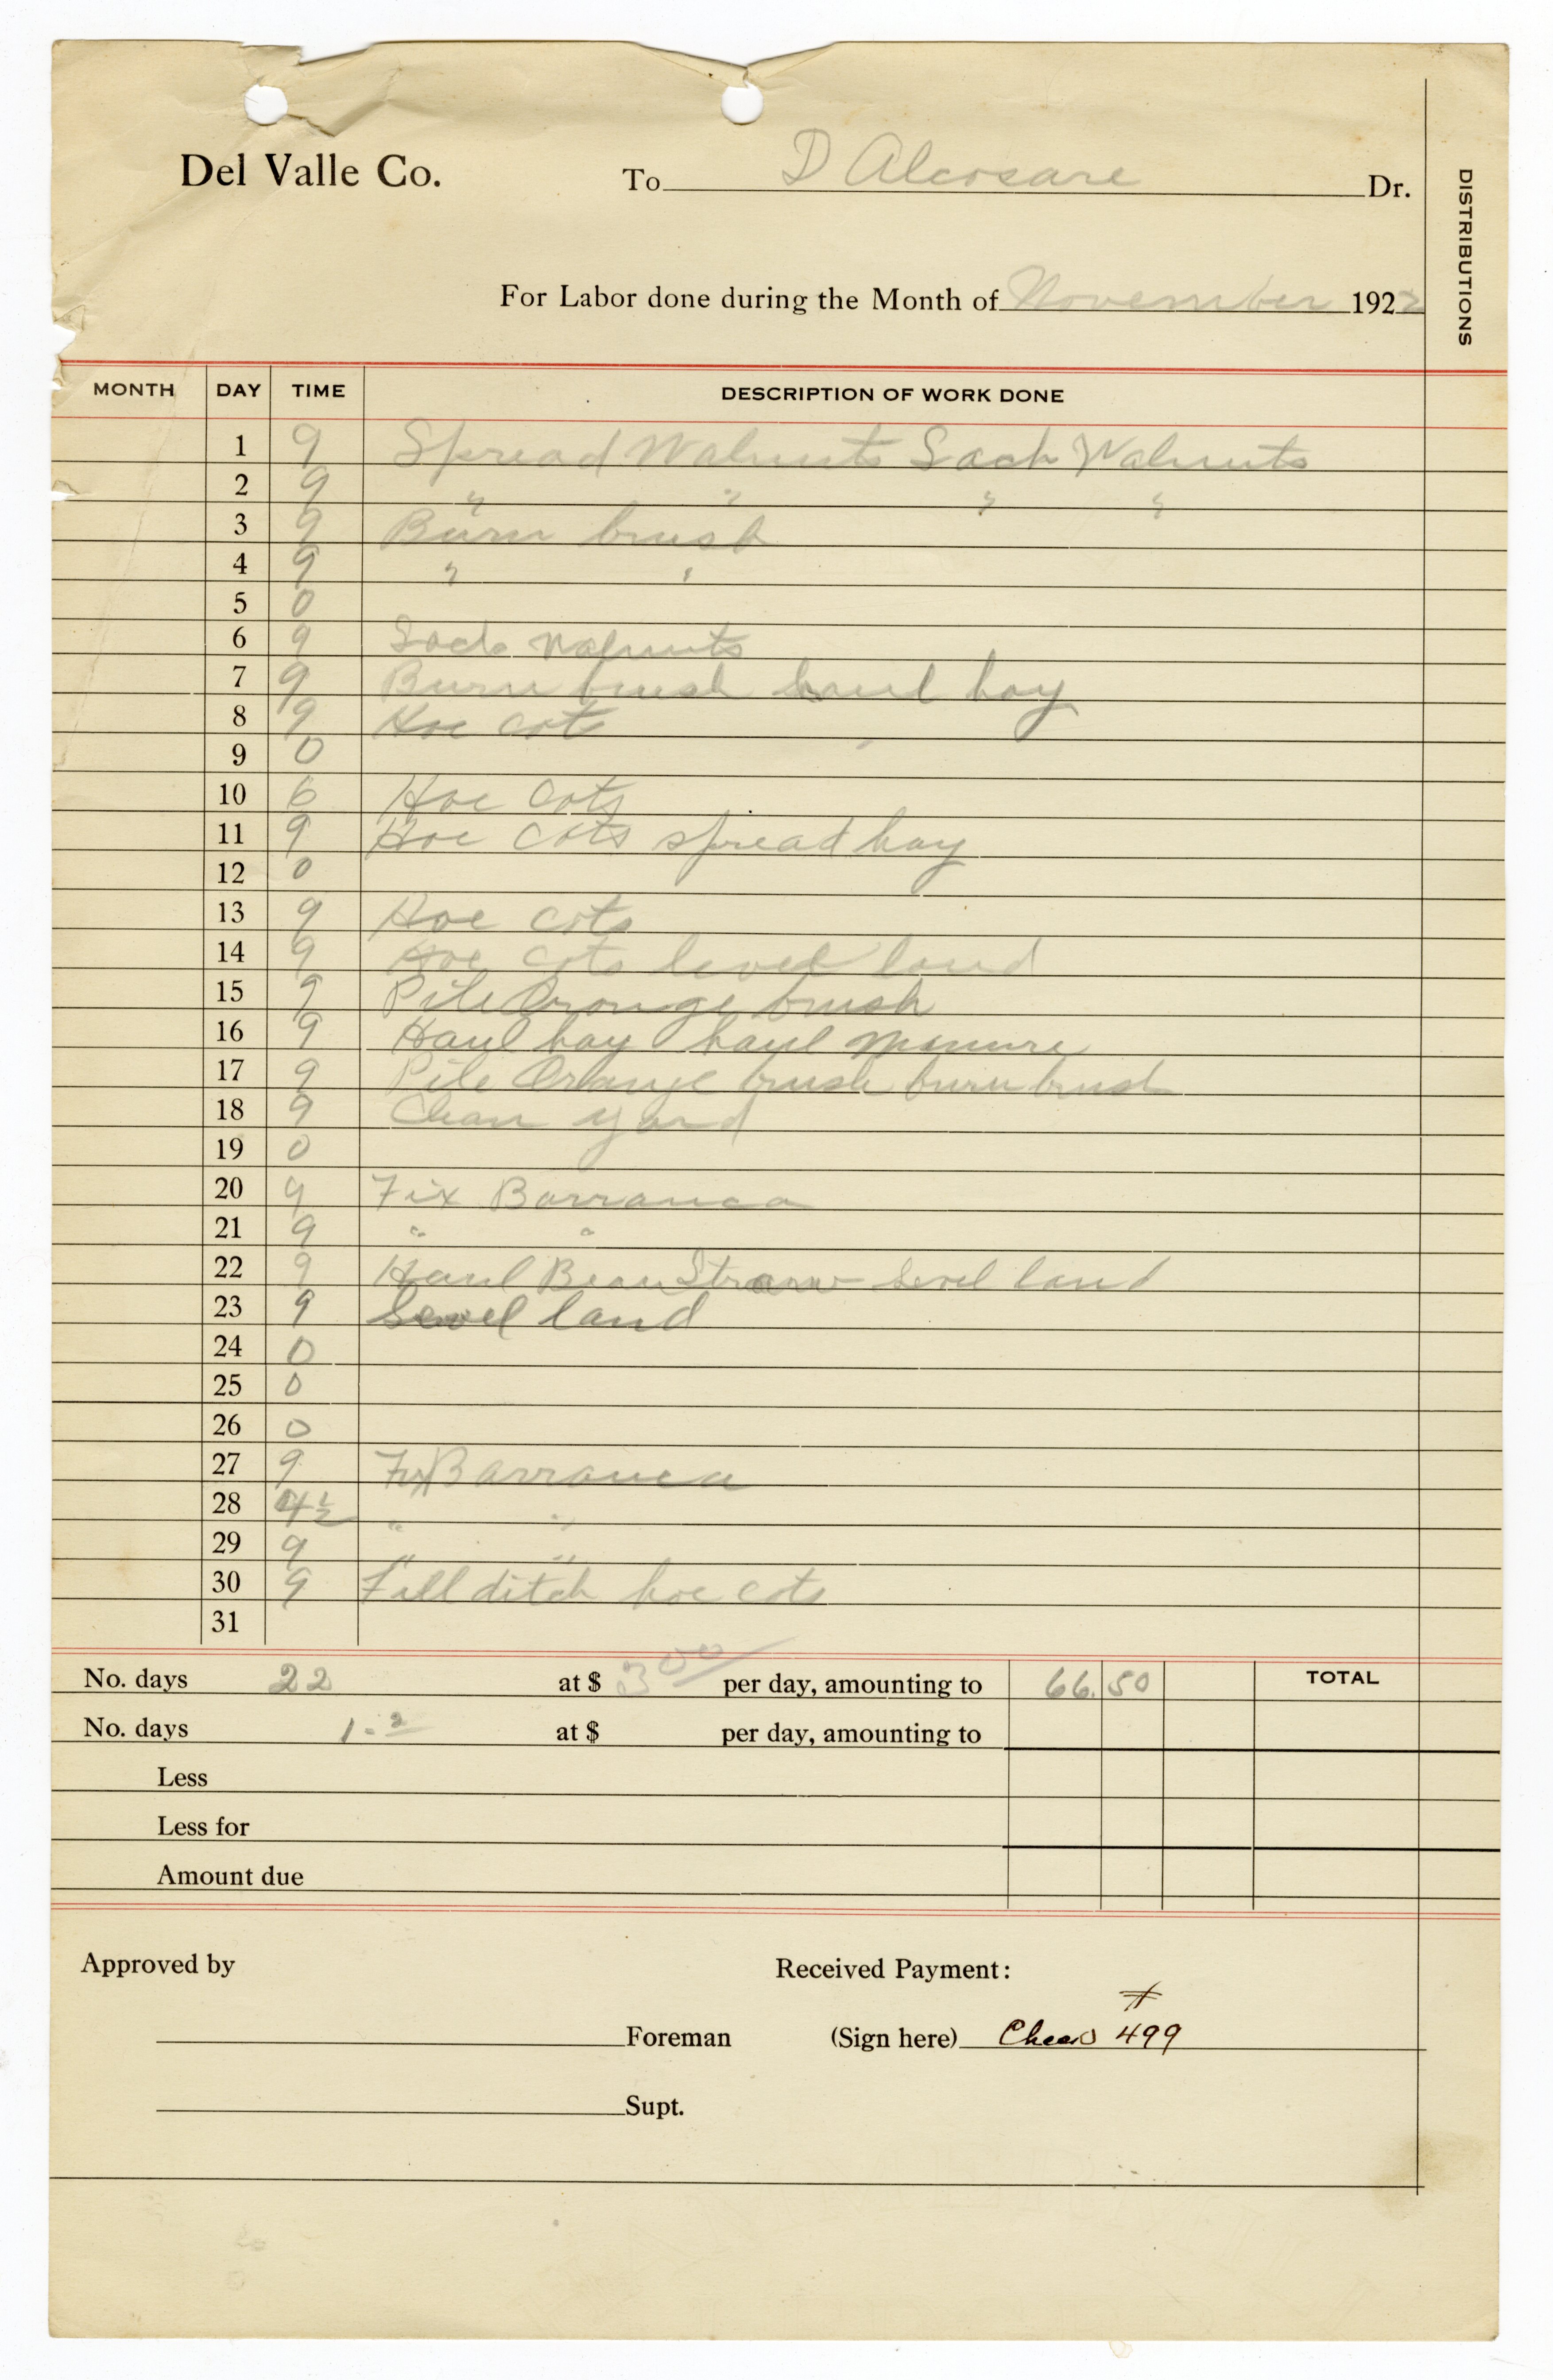 Del Valle Co. To D Alcosare Dr.
DISTRIBUTIONS
For Labor done during the Month of November 1922
MONTH DAY TIME DESCRIPTION OF WORK DONE
1 9 Spread Walnuts Sack Walnuts
2 9 " " " "
3 9 Burn brush
4 9 " "
5 0
6 9 Sack Walnuts
7 9 Burn brush haul hay
8 9 Hoe cots
9 0
10 6 Hoe Cots
11 9 Hoe Cots spread hay
12 0
13 9 Hoe cots
14 9 Hoe cots level land
15 9 Pile Orange brush
16 9 Haul hay haul manure
17 9 Pile Orange brush burn brush
18 9 Clean yard
19 0
20 9 Fix Barranca
21 9 " "
22 9 Haul Bean Straw level land
23 9 Level land
24 0
25 0
26 0
27 9 Fix Barranca
28 4½ " "
29 9 " "
30 9 Fill ditch hoe cots
31
No. days 22 at $ 3 00 per day, amounting to 66.50 TOTAL
No. days at $ per day, amounting to
Less
Less for
Amount due
Approved by Received Payment:
#
Foreman (Sign here) Check 499
Supt.